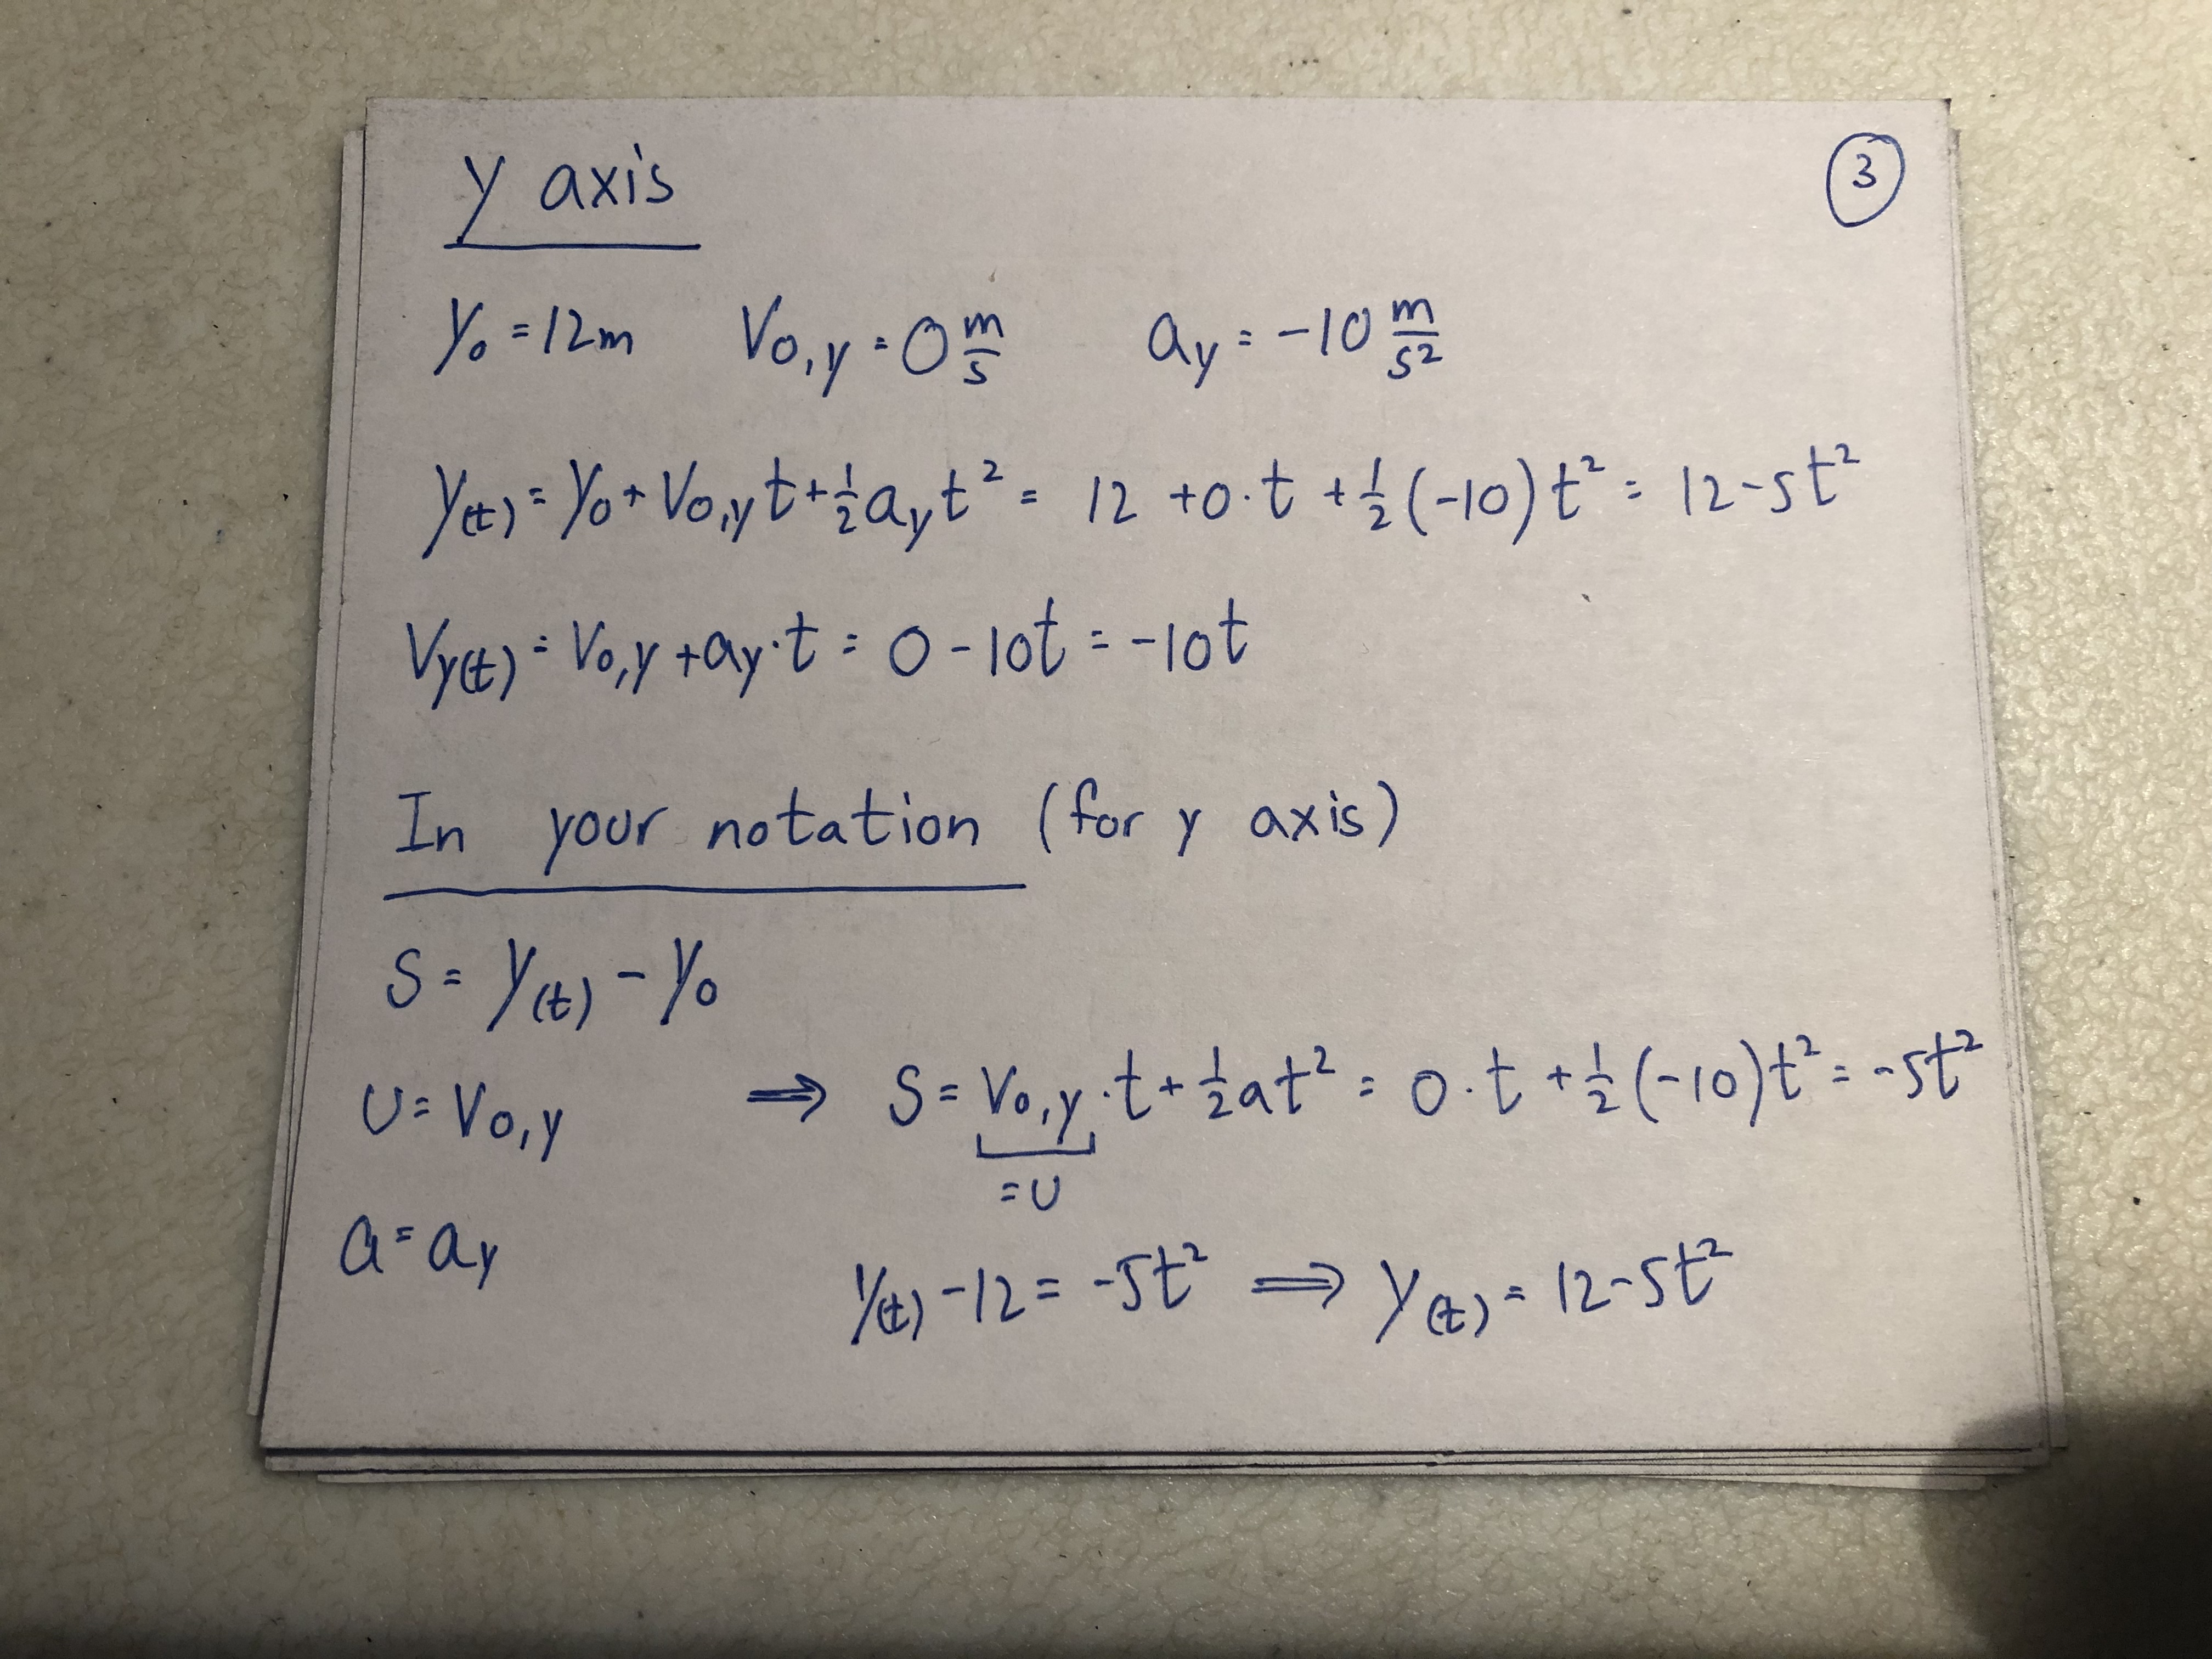 y axis
3
y₀ = 12m V₀,y = 0 m/s a_y = -10 m/s²
y(t) = y₀ + V₀,y t + ½ a_y t² = 12 + 0·t + ½(-10)t² = 12 - 5t²
V_y(t) = V₀,y + a_y·t = 0 - 10t = -10t
In your notation (for y axis)
S = y(t) - y₀
U = V₀,y ⟹ S = V₀,y·t + ½at² = 0·t + ½(-10)t² = -5t²
=U
a = a_y
y(t) - 12 = -5t² ⟹ y(t) = 12 - 5t²